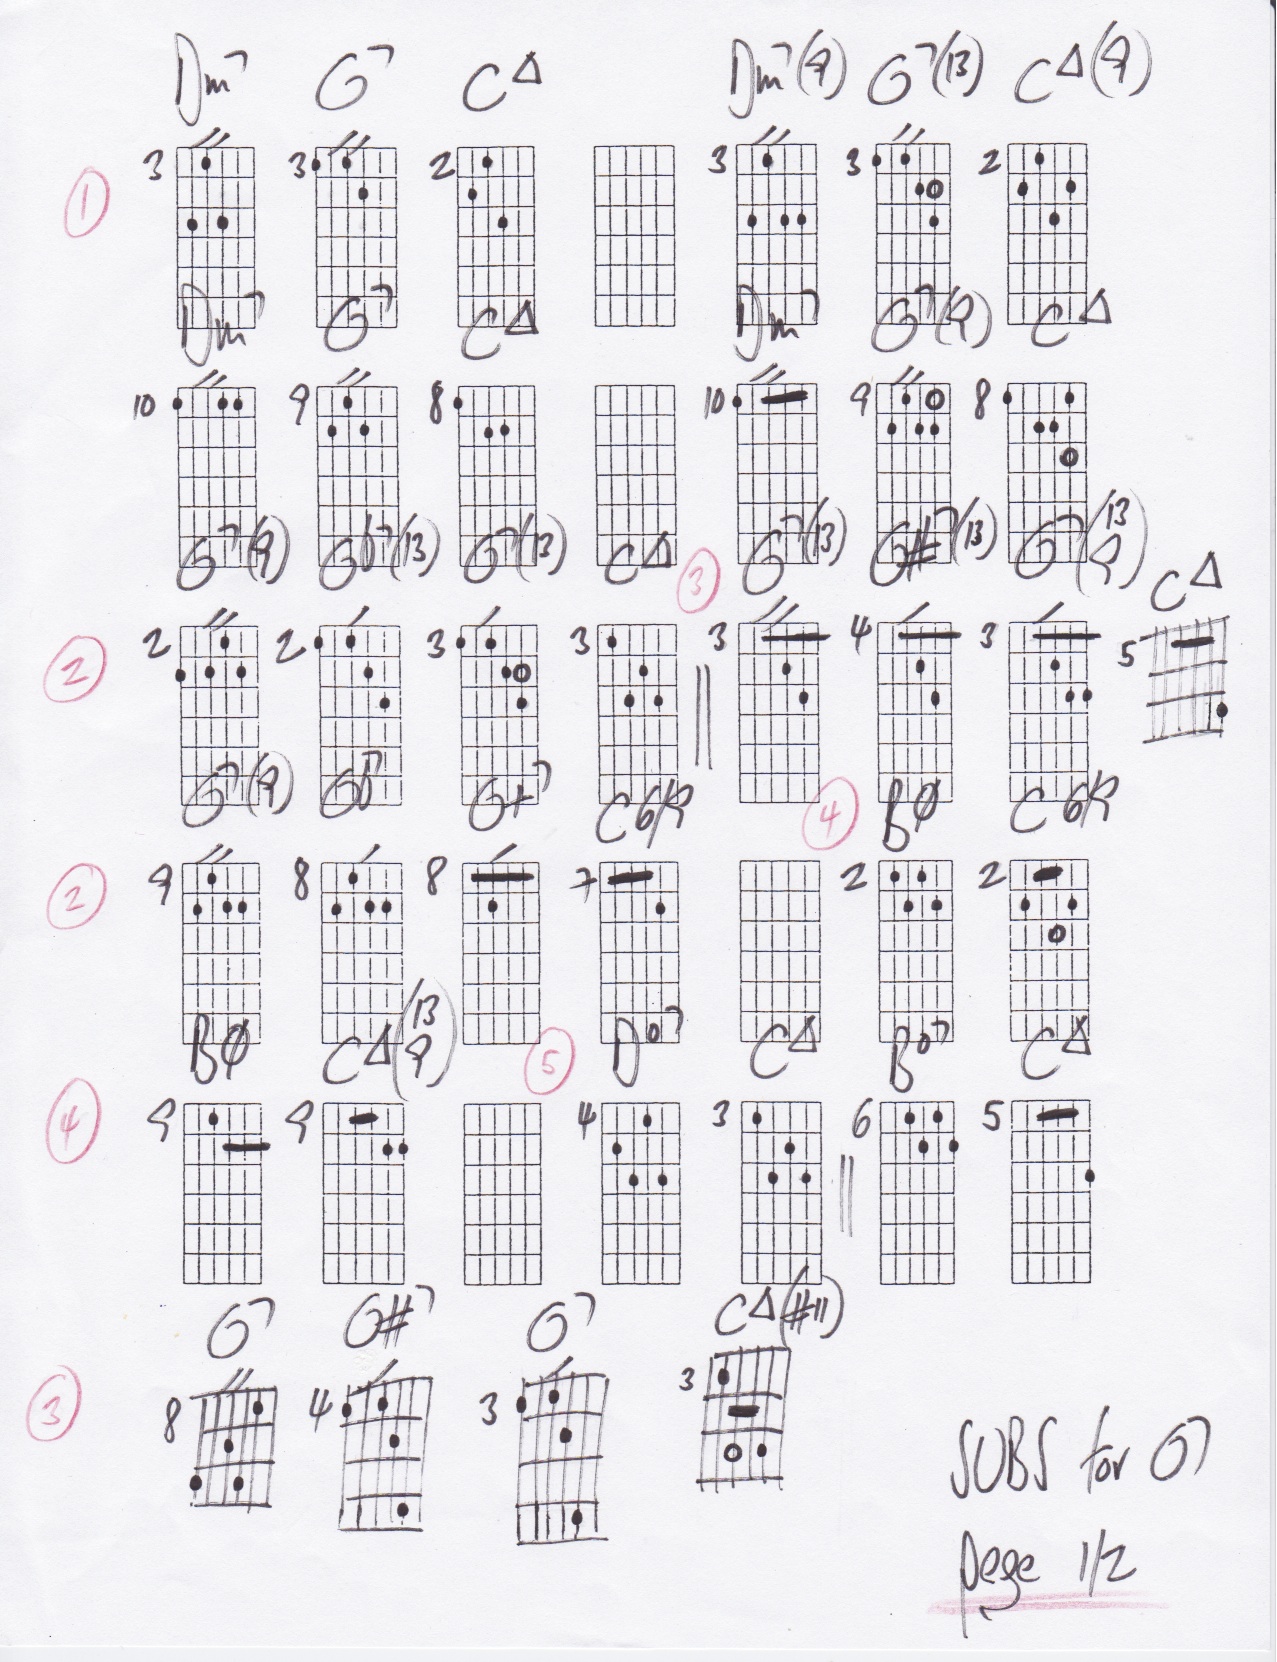 Dm7 G7 C△ Dm7(9) G7(13) C△(9)
① 3 3 2 3 3 2
Dm7 G7 C△ Dm7 G7(9) C△
10 9 8 10 9 8
G7(9) Gb7(13) G7(13) C△ ③ G7(13) G#7(13) G7(13 9) C△
② 2 2 3 3 3 4 3 5
G7(9) Gb7 G+7 C6/9 ④ BØ C6/9
② 9 8 8 7 2 2
BØ C△(13 9) ⑤ Do7 C△ Bo7 C△
④ 9 9 4 3 6 5
G7 G#7 G7 C△(#11)
③ 8 4 3 3
SUBS for G7
page 1/2